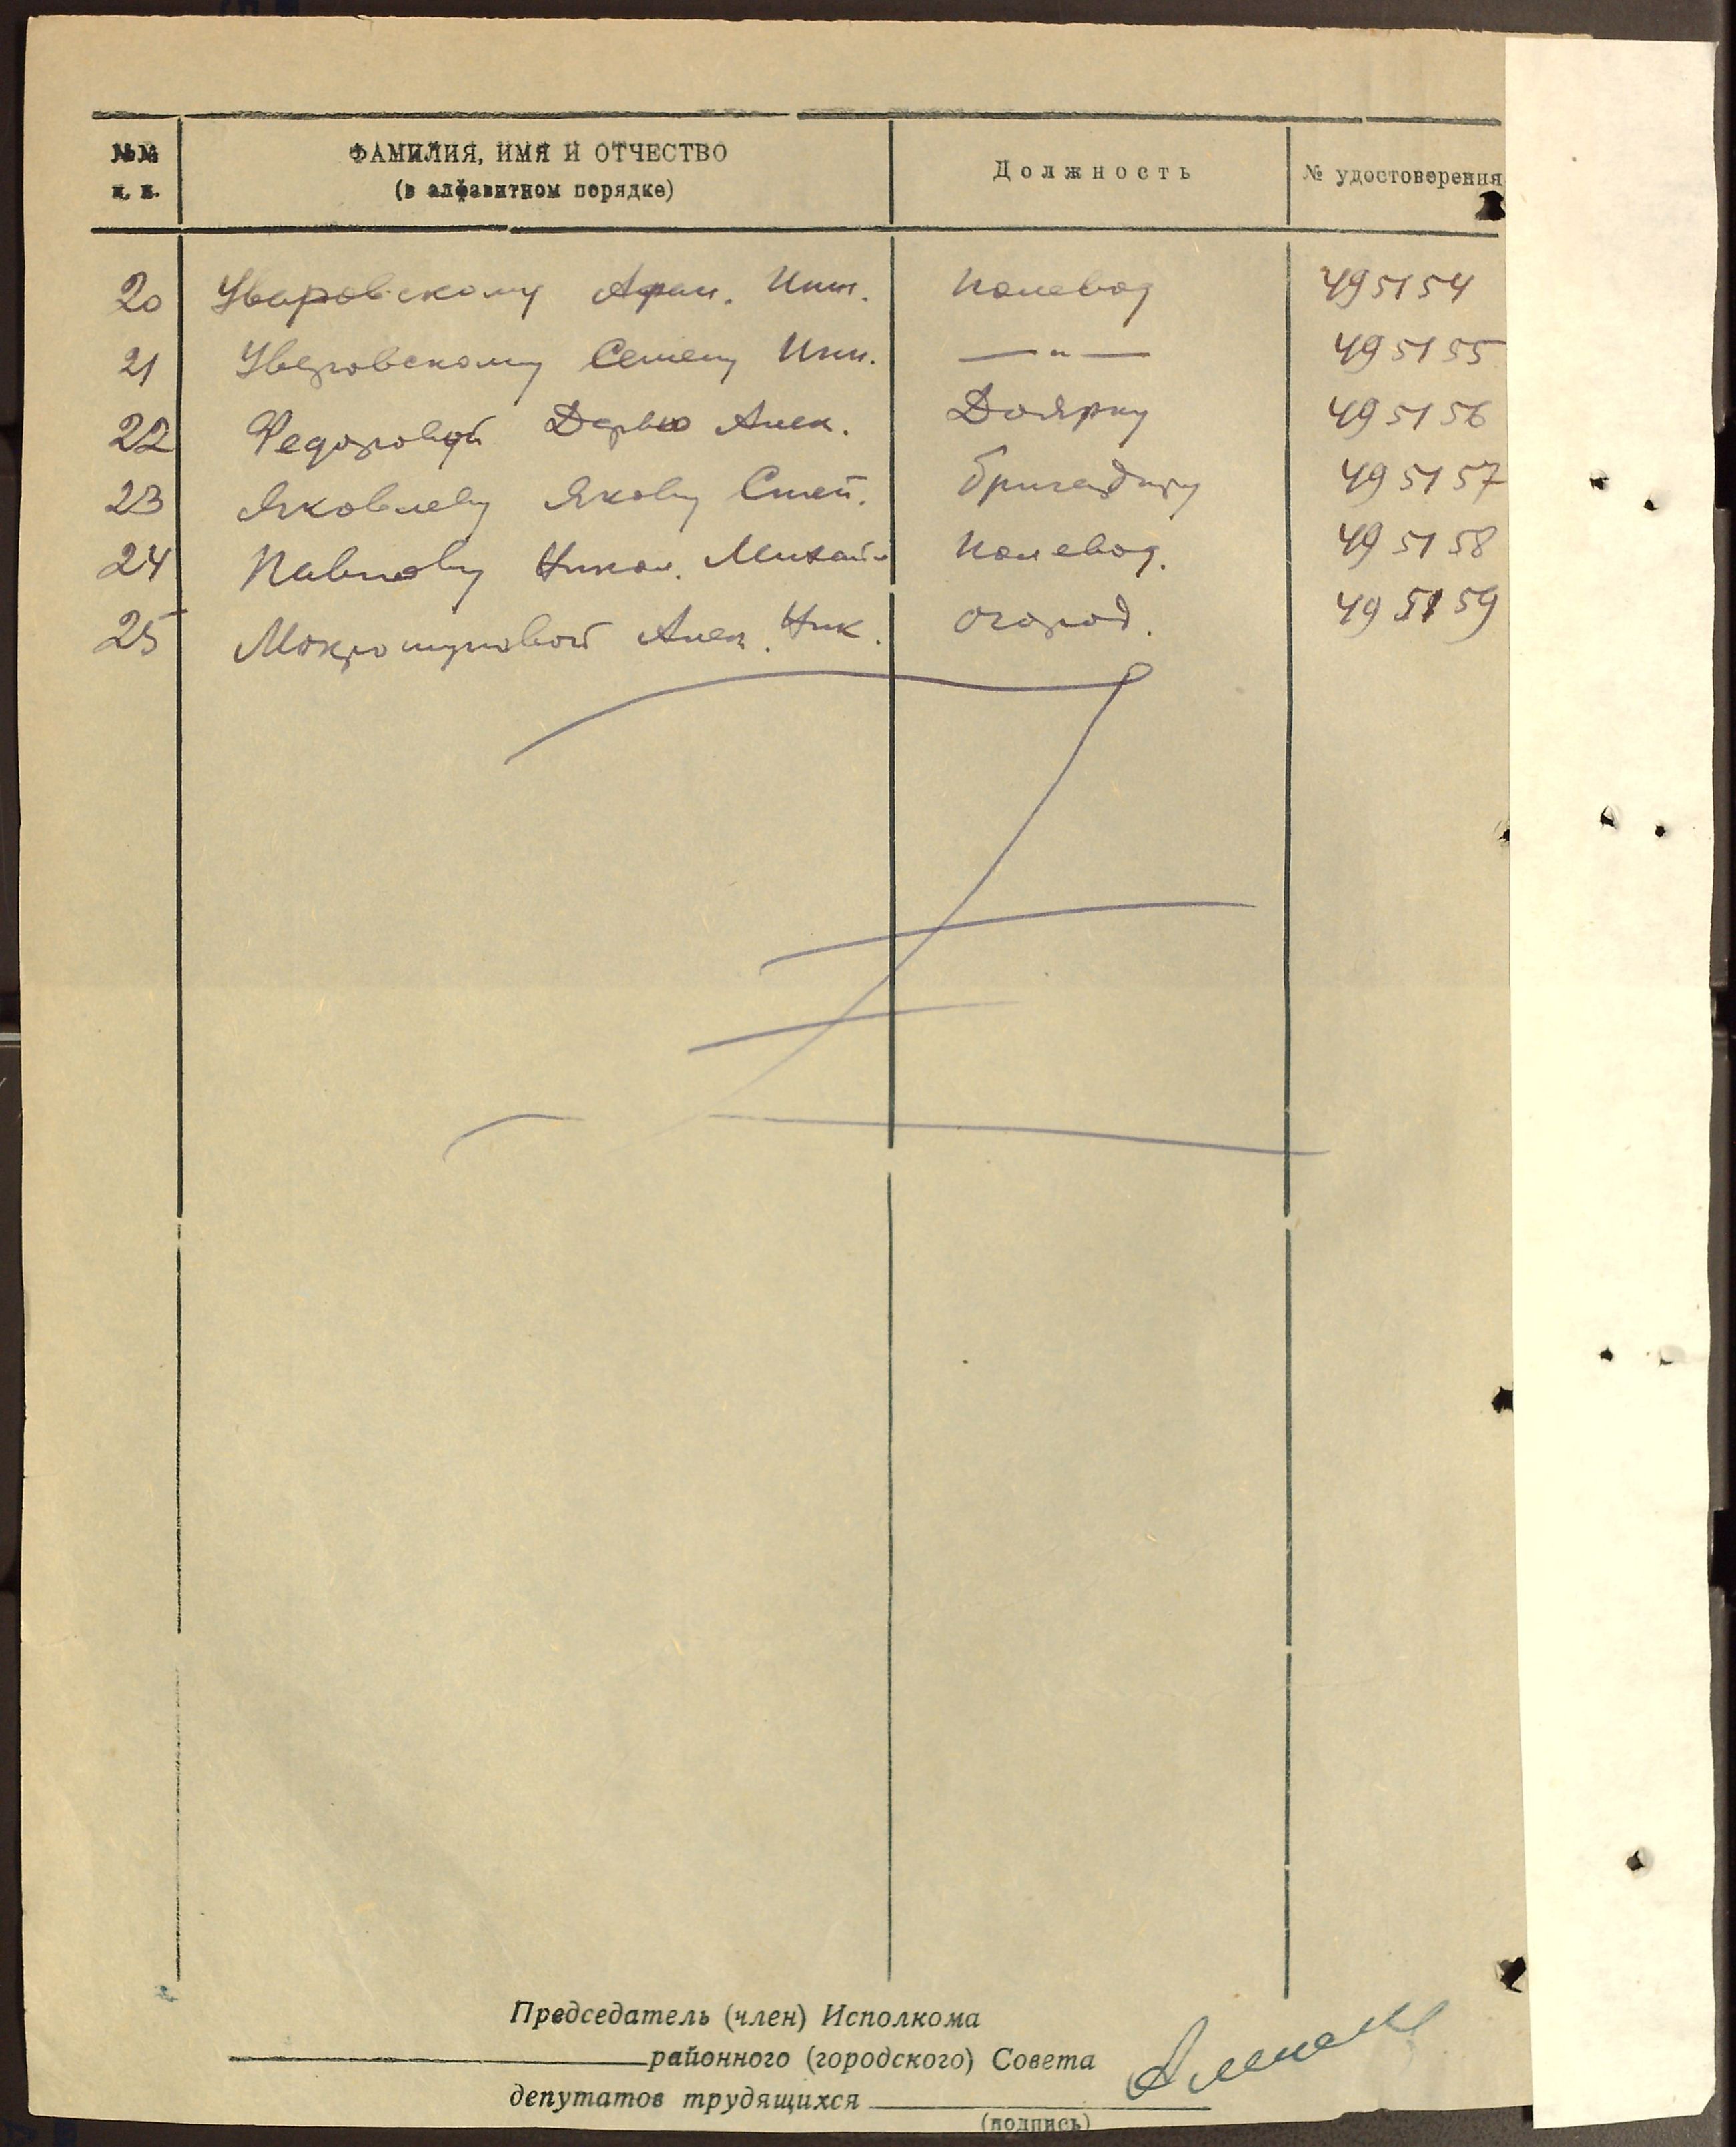 №№ ФАМИЛИЯ, ИМЯ И ОТЧЕСТВО Должность № удостоверения
п. п. (в алфавитном порядке)
20 Уваровскому Афан. Инн. Полевод 495154
21 Уваровскому Семену Инн. —〃— 495155
22 Федоровой Дарью Алек. Доярку 495156
23 Яковлеву Якову Степ. Бригадиру 495157
24 Павлову Никол. Михайл Полевод. 495158
25 Мокрошуповой Алек. Ник. огород. 495159
Председатель (член) Исполкома
районного (городского) Совета
депутатов трудящихся
(подпись)